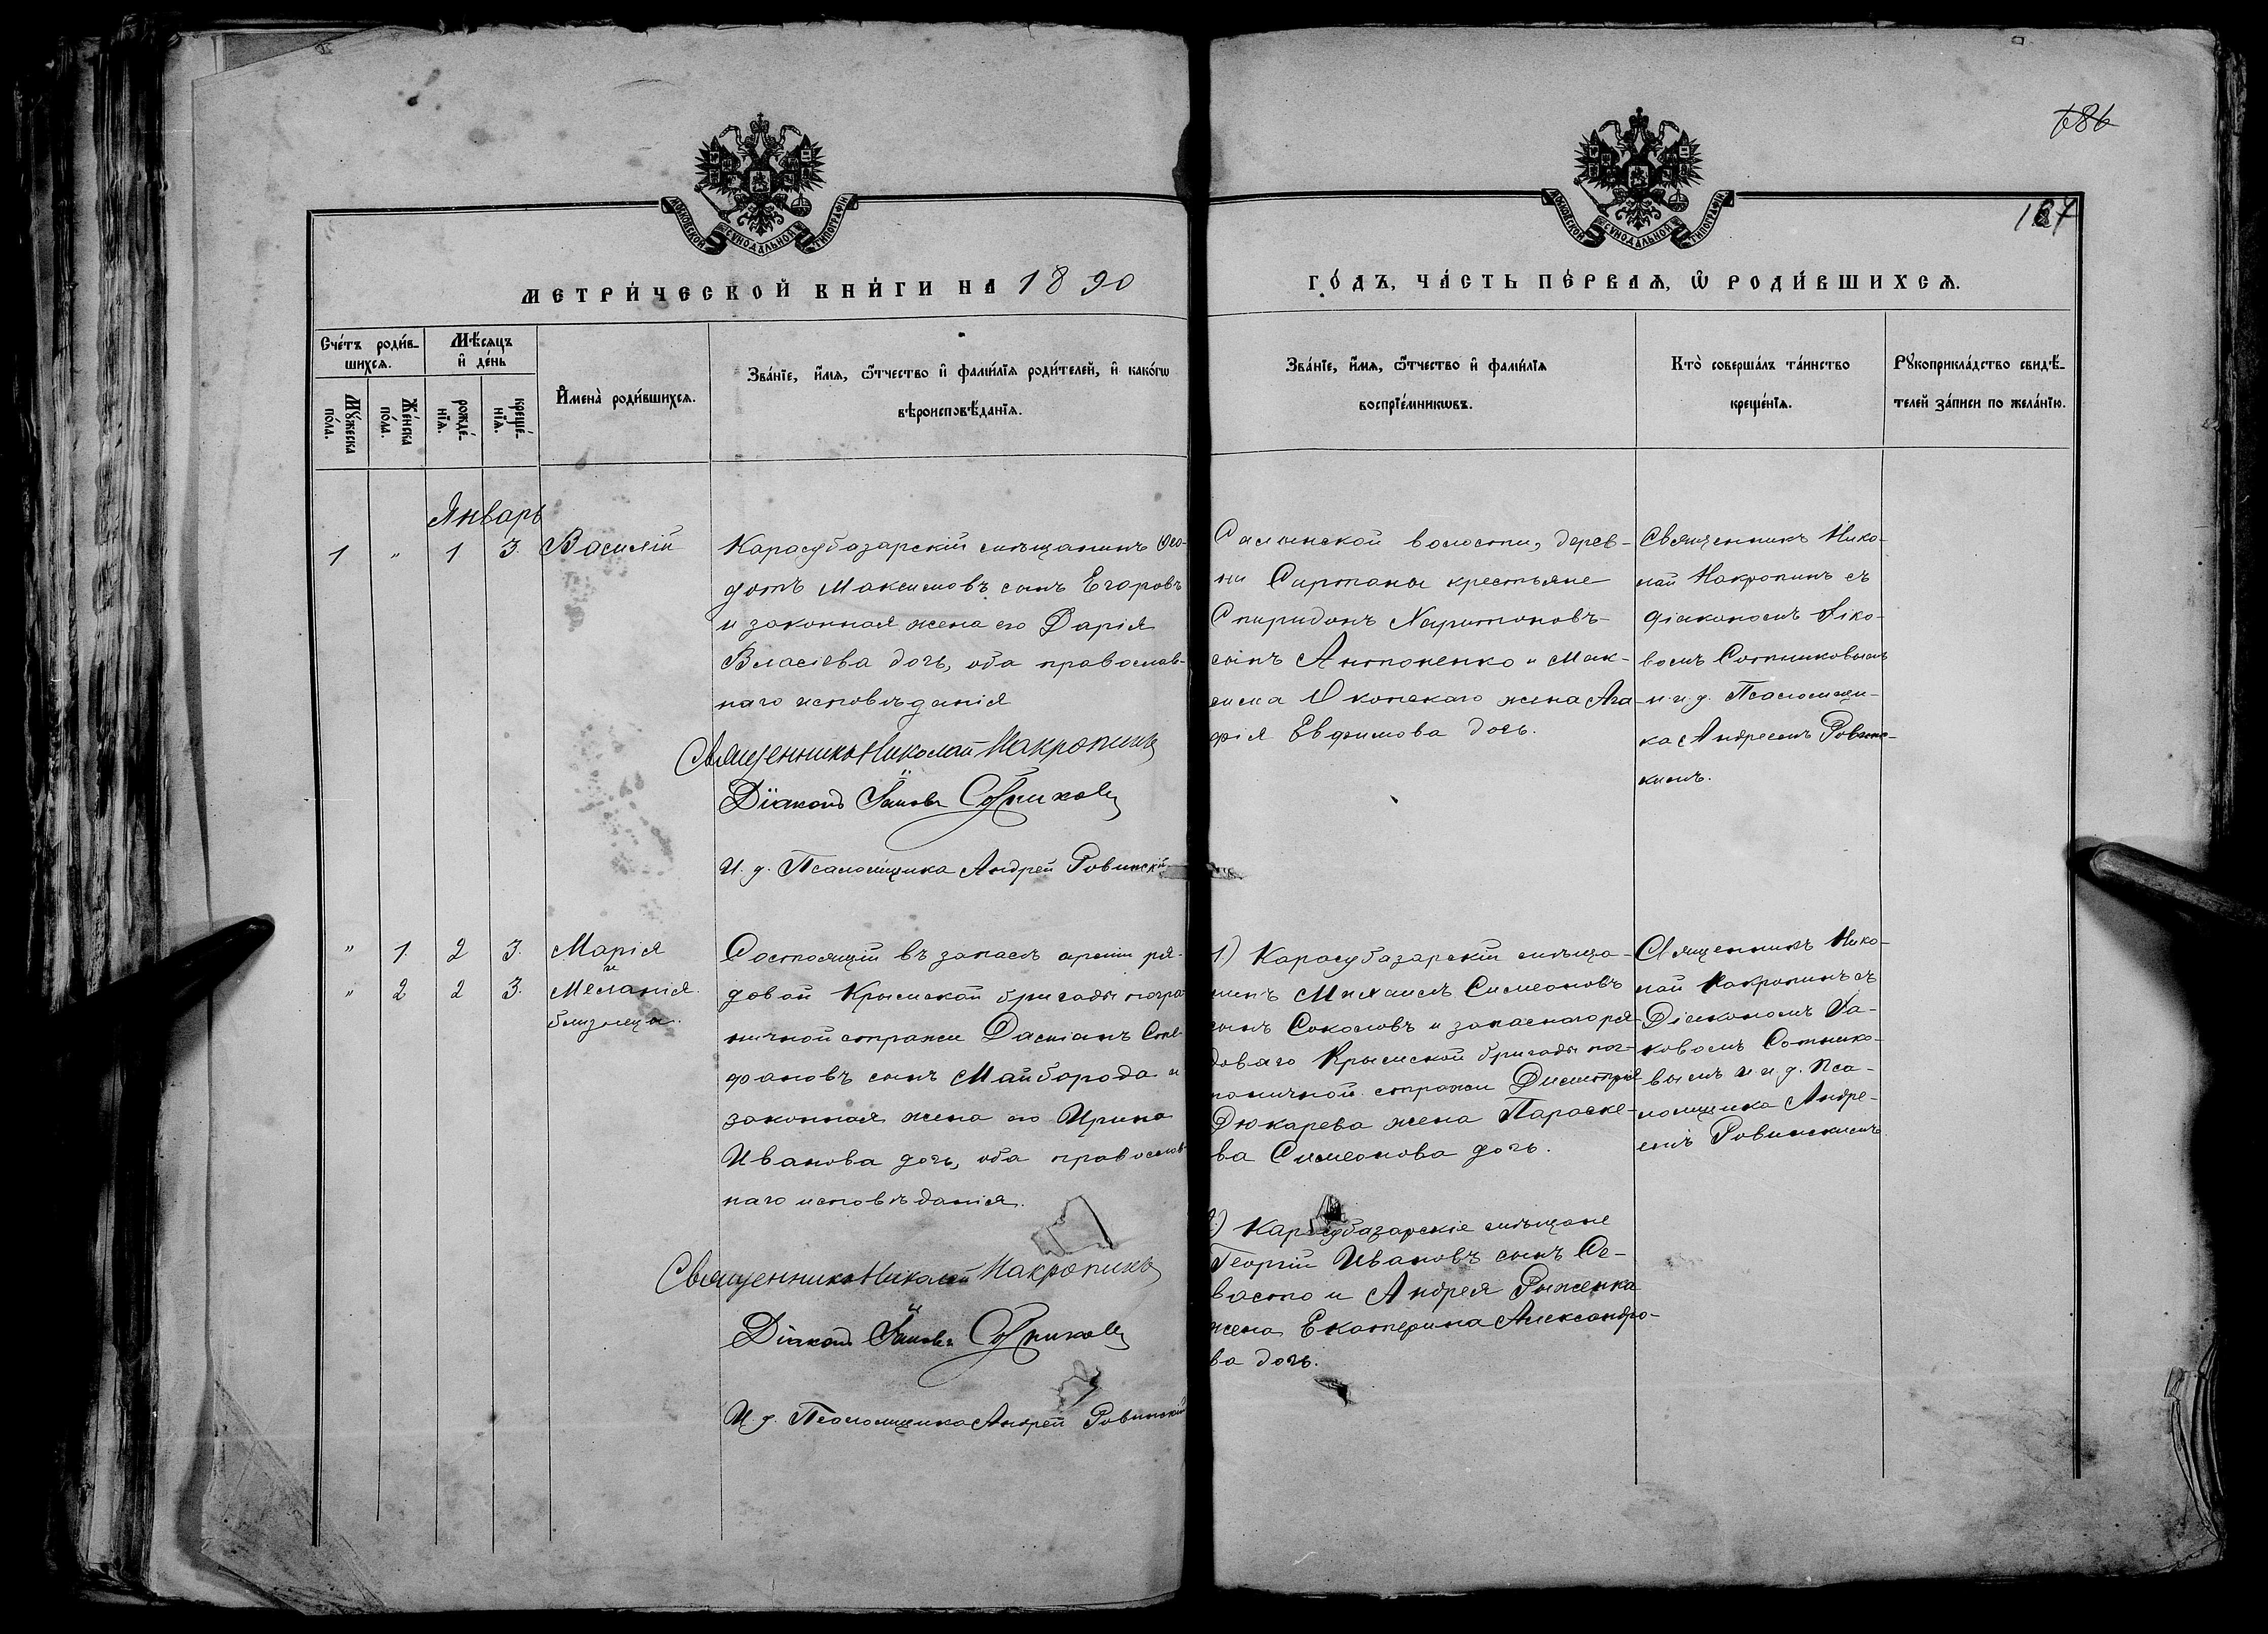 686
167
МОСКОВСКОЙ СУНОДАЛЬНОЙ ТИПОГРАФІИ
МОСКОВСКОЙ СУНОДАЛЬНОЙ ТИПОГРАФІИ
МЕТРИ́ЧЕСКОЙ КНИ́ГИ НА 1890
ГО́ДЪ, ЧА́СТЬ ПЕ́РВАѦ, Ѡ РОДИ́ВШИХСѦ.
Сче́тъ роди́в-
шихсѧ.
Мꙋ́жеска
по́ла.
Же́нска
по́ла.
Мѣ́сѧцъ
и҆ де́нь
рожде́-
нїѧ.
креще́-
нїѧ.
И҆мена̀ роди́вшихсѧ.
Зва́нїе, и҆́мѧ, ѻ҆́тчество и҆ фами́лїѧ роди́телей, и҆ како́гѡ
вѣроисповѣ́данїѧ.
Зва́нїе, и҆́мѧ, ѻ҆́тчество и҆ фами́лїѧ
воспрїе́мникѡвъ.
Кто̀ соверша́лъ та́инство
креще́нїѧ.
Рꙋкоприкла́дство свидѣ́-
телей за́писи по жела́нїю.
Январь
1 " 1 3. Василій
Карасубазарскій мѣщанинъ Ѳео-
дотъ Максимовъ сынъ Егоровъ
и законная жена его Дарія
Власіева дочь, оба православ-
наго исповѣданія
Священникъ Николай Макропинъ
Діаконъ Іаковъ Сотниковъ
И. д. Псаломщика Андрей Ровинскій
Салынской волости, дерев-
ни Сиртаны крестьяне
Спиридонъ Харитоновъ
сынъ Антоненко и Мак-
сима Оконскаго жена Ага
фія Евфимова дочь.
Священникъ Нико-
лай Макропинъ съ
діакономъ Іако-
вомъ Сотниковымъ
и и. д. Псаломщи-
ка Андреемъ Ровинс-
кимъ.
" 1. 2 3. Марія
и
" 2 2 3. Меланія
близнецы.
Состоящій въ запасѣ арміи ря-
довой Крымской бригады погра
ничной стражи Даміанъ Сте-
фановъ сынъ Майборода и
законная жена его Ирина
Иванова дочь, оба православ
наго исповѣданія.
Священникъ Николай Макропинъ
Діаконъ Іаковъ Сотниковъ
И. д. Псаломщика Андрей Ровинскій
1) Карасубазарскій мѣща-
нинъ Михаилъ Симеоновъ
сынъ Соколовъ и запаснаго ря-
доваго Крымской бригады пог-
раничной стражи Димитрія
Дюкарева жена Параске-
ва Симеонова дочь.
2) Карасубазарскіе мѣщане
Георгій Ивановъ сынъ Се-
васто и Андрея Рыженка
жена Екатерина Александро-
ва дочь.
Священникъ Нико-
лай Макропинъ съ
Діакономъ Іа-
ковомъ Сотнико-
вымъ и и. д. Пса-
ломщика Андре-
емъ Ровинскимъ